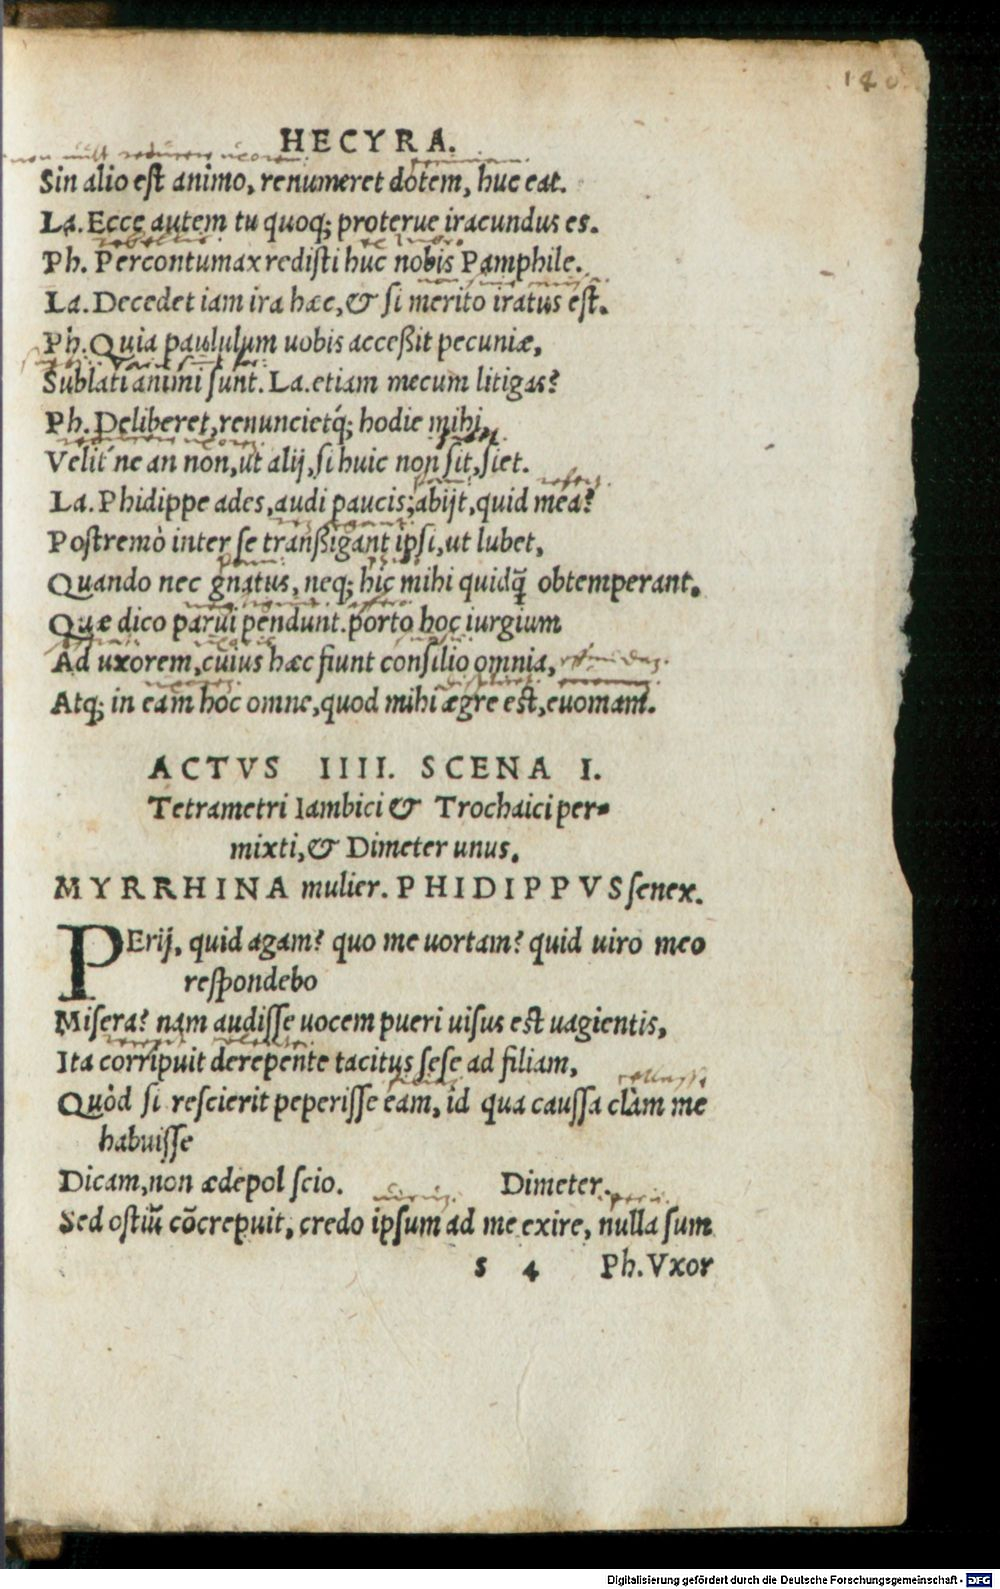 140
HECYRA.
non uult reducere uxorem
Sin alio eſt animo, renumeret dotem, huc eat.
La. Ecce autem tu quoq; proterue iracundus es.
Ph. Percontumax rediſti huc nobis Pamphile.
La. Decedet iam ira hæc, & ſi merito iratus eſt.
Ph. Quia paululum uobis acceßit pecuniæ,
Sublati animi ſunt. La. etiam mecum litigas?
Ph. Deliberet, renuncietq́; hodie mihi,
Velit´ ne an non, ut alij, ſi huic non ſit, ſiet.
La. Phidippe ades, audi paucis; abijt, quid mea?
Poſtremò inter ſe tranßigant ipſi, ut lubet,
Quando nec gnatus, neq; hic mihi quidq̃ obtemperant.
Quæ dico parui pendunt. porto hoc iurgium
Ad uxorem, cuius hæc fiunt conſilio omnia,
Atq; in eam hoc omne, quod mihi ægre eſt, euomam.
ACTVS IIII. SCENA I.
Tetrametri Iambici & Trochaici per-
mixti, & Dimeter unus.
MYRRHINA mulier. PHIDIPPVS ſenex.
PErij, quid agam? quo me uortam? quid uiro meo
reſpondebo
Miſera? nam audiſſe uocem pueri uiſus eſt uagientis,
Ita corripuit derepente tacitus ſeſe ad filiam,
Quòd ſi reſcierit peperiſſe eam, id qua cauſſa clàm me
habuiſſe
Dicam, non ædepol ſcio. Dimeter.
Sed oſtiũ cõcrepuit, credo ipſum ad me exire, nulla ſum
s 4 Ph. Vxor
Digitalisierung gefördert durch die Deutsche Forschungsgemeinschaft - DFG